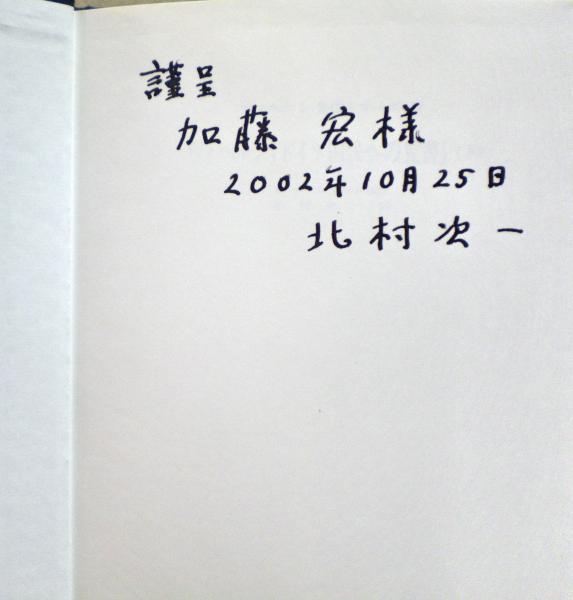 謹呈
加藤 宏様
2002年10月25日
北村次一